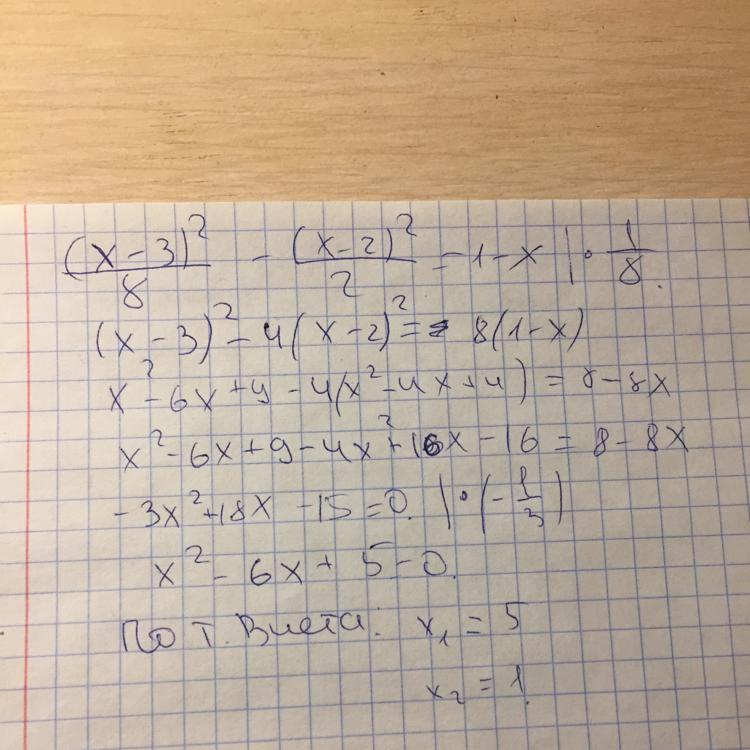 (x-3)²/8 - (x-2)²/2 = 1-x | · 1/8.
(x-3)² - 4(x-2)² = 8(1-x)
x² - 6x + 9 - 4(x² - 4x + 4) = 8 - 8x
x² - 6x + 9 - 4x² + 16x - 16 = 8 - 8x
-3x² + 18x - 15 = 0. | · (-1/3)
x² - 6x + 5 = 0.
По т. Виета: x₁ = 5
x₂ = 1.